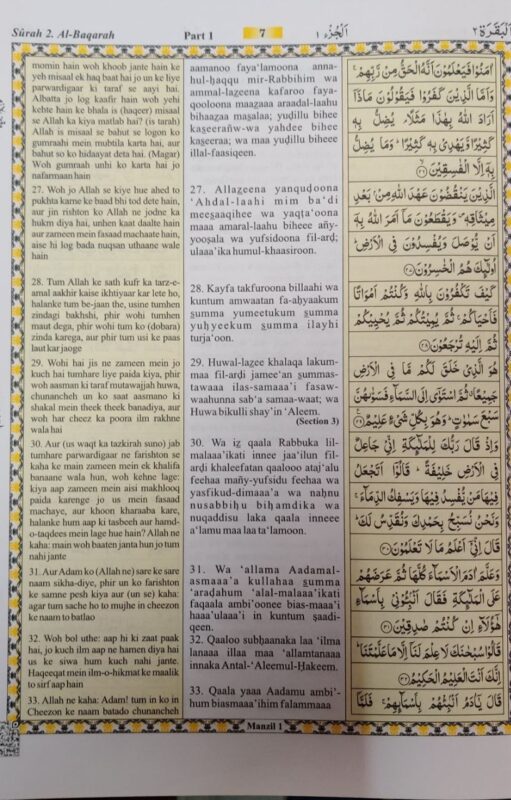 Sûrah 2. Al-Baqarah
Part 1
7
اَلْجُزْء ١
اَلْبَقَرَة ٢
momin hain woh khoob jante hain ke
yeh misaal ek haq baat hai jo un ke liye
parwardigaar ki taraf se aayi hai.
Albatta jo log kaafir hain woh yehi
kehte hain ke bhala is (haqeer) misaal
se Allah ka kiya matlab hai? (is tarah)
Allah is misaal se bahut se logon ko
gumraahi mein mubtila karta hai, aur
bahut so ko hidaayat deta hai. (Magar)
Woh gumraah unhi ko karta hai jo
nafarmaan hain
27. Woh jo Allah se kiye hue ahed to
pukhta karne ke baad bhi tod dete hain,
aur jin rishton ko Allah ne jodne ka
hukm diya hai, unhen kaat daalte hain
aur zameen mein fasaad machaate hain,
aise hi log bada nuqsan uthaane wale
hain
28. Tum Allah ke sath kufr ka tarz-e-
amal aakhir kaise ikhtiyaar kar lete ho,
halanke tum be-jaan the, usine tumhen
zindagi bakhshi, phir wohi tumhen
maut dega, phir wohi tum ko (dobara)
zinda karega, aur phir tum usi ke paas
laut kar jaoge
29. Wohi hai jis ne zameen mein jo
kuch hai tumhare liye paida kiya, phir
woh aasman ki taraf mutawajjah huwa,
chunancheh un ko saat aasmano ki
shakal mein theek theek banadiya, aur
woh har cheez ka poora ilm rakhne
wala hai
30. Aur (us waqt ka tazkirah suno) jab
tumhare parwardigaar ne farishton se
kaha ke main zameen mein ek khalifa
banaane wala hun, woh kehne lage:
kiya aap zameen mein aisi makhlooq
paida karenge jo us mein fasaad
machaye, aur khoon kharaaba kare,
halanke hum aap ki tasbeeh aur hamd-
o-taqdees mein lage hue hain? Allah ne
kaha: main woh baaten janta hun jo tum
nahi jante
31. Aur Adam ko (Allah ne) sare ke sare
naam sikha-diye, phir un ko farishton
ke samne pesh kiya aur (un se) kaha:
agar tum sache ho to mujhe in cheezon
ke naam to batlao
32. Woh bol uthe: aap hi ki zaat paak
hai, jo kuch ilm aap ne hamen diya hai
us ke siwa hum kuch nahi jante.
Haqeeqat mein ilm-o-hikmat ke maalik
to sirf aap hain
33. Allah ne kaha: Adam! tum in ko in
Cheezon ke naam batado chunancheh
aamanoo faya'lamoona anna-
hul-ḥaqqu mir-Rabbihim wa
ammal-lazeena kafaroo faya-
qooloona maazaaa araadal-laahu
bihaazaa mas̱alaa; yuḍillu bihee
kas̱eerañw-wa yahdee bihee
kas̱eeraa; wa maa yuḍillu biheee
illal-faasiqeen.
27. Allazeena yanquḍoona
'Ahdal-laahi mim ba'di
mees̱aaqihee wa yaqta'oona
maaa amaral-laahu biheee añy-
yooṣala wa yufsidoona fil-arḍ;
ulaaa'ika humul-khaasiroon.
28. Kayfa takfuroona billaahi wa
kuntum amwaatan fa-aḥyaakum
s̱umma yumeetukum s̱umma
yuḥyeekum s̱umma ilayhi
turja'oon.
29. Huwal-lazee khalaqa lakum-
maa fil-arḍi jamee'an s̱ummas-
tawaaa ilas-samaaa'i fasaw-
waahunna sab'a samaa-waat; wa
Huwa bikulli shay'in 'Aleem.
(Section 3)
30. Wa iz̲ qaala Rabbuka lil-
malaaa'ikati innee jaa'ilun fil-
arḍi khaleefatan qaalooo ataj'alu
feehaa mañy-yufsidu feehaa wa
yasfikud-dimaaa'a wa naḥnu
nusabbiḥu biḥamdika wa
nuqaddisu laka qaala inneee
a'lamu maa laa ta'lamoon.
31. Wa 'allama Aadamal-
asmaaa'a kullahaa s̱umma
'araḍahum 'alal-malaaa'ikati
faqaala ambi'oonee bias-maaa'i
haaa'ulaaa'i in kuntum ṣaadi-
qeen.
32. Qaaloo subḥaanaka laa 'ilma
lanaaa illaa maa 'allamtanaaa
innaka Antal-'Aleemul-Ḥakeem.
33. Qaala yaaa Aadamu ambi'-
hum biasmaaa'ihim falammaaa
اٰمَنُوْا فَيَعْلَمُوْنَ اَنَّهُ الْحَقُّ مِنْ رَّبِّهِمْ ۚ
وَاَمَّا الَّذِيْنَ كَفَرُوْا فَيَقُوْلُوْنَ مَاذَآ
اَرَادَ اللّٰهُ بِهٰذَا مَثَلًا ۘ يُضِلُّ بِهٖ
كَثِيْرًا وَّيَهْدِيْ بِهٖ كَثِيْرًا ؕ وَمَا يُضِلُّ
بِهٖٓ اِلَّا الْفٰسِقِيْنَ ۙ ٢٦
الَّذِيْنَ يَنْقُضُوْنَ عَهْدَ اللّٰهِ مِنْۢ بَعْدِ
مِيْثَاقِهٖ ۪ وَيَقْطَعُوْنَ مَآ اَمَرَ اللّٰهُ بِهٖٓ
اَنْ يُّوْصَلَ وَيُفْسِدُوْنَ فِي الْاَرْضِ ؕ
اُولٰٓئِكَ هُمُ الْخٰسِرُوْنَ ٢٧
كَيْفَ تَكْفُرُوْنَ بِاللّٰهِ وَكُنْتُمْ اَمْوَاتًا
فَاَحْيَاكُمْ ۚ ثُمَّ يُمِيْتُكُمْ ثُمَّ يُحْيِيْكُمْ
ثُمَّ اِلَيْهِ تُرْجَعُوْنَ ٢٨
هُوَ الَّذِيْ خَلَقَ لَكُمْ مَّا فِي الْاَرْضِ
جَمِيْعًا ۗ ثُمَّ اسْتَوٰٓى اِلَى السَّمَآءِ فَسَوّٰىهُنَّ
سَبْعَ سَمٰوٰتٍ ؕ وَهُوَ بِكُلِّ شَيْءٍ عَلِيْمٌ ٢٩
وَاِذْ قَالَ رَبُّكَ لِلْمَلٰٓئِكَةِ اِنِّيْ جَاعِلٌ
فِي الْاَرْضِ خَلِيْفَةً ؕ قَالُوْٓا اَتَجْعَلُ
فِيْهَا مَنْ يُّفْسِدُ فِيْهَا وَيَسْفِكُ الدِّمَآءَ ۚ
وَنَحْنُ نُسَبِّحُ بِحَمْدِكَ وَنُقَدِّسُ لَكَ ؕ
قَالَ اِنِّيْٓ اَعْلَمُ مَا لَا تَعْلَمُوْنَ ٣٠
وَعَلَّمَ اٰدَمَ الْاَسْمَآءَ كُلَّهَا ثُمَّ عَرَضَهُمْ
عَلَى الْمَلٰٓئِكَةِ ۙ فَقَالَ اَنْۢبِـُٔوْنِيْ بِاَسْمَآءِ
هٰٓؤُلَآءِ اِنْ كُنْتُمْ صٰدِقِيْنَ ٣١
قَالُوْا سُبْحٰنَكَ لَا عِلْمَ لَنَآ اِلَّا مَا عَلَّمْتَنَا ؕ
اِنَّكَ اَنْتَ الْعَلِيْمُ الْحَكِيْمُ ٣٢
قَالَ يٰٓاٰدَمُ اَنْۢبِئْهُمْ بِاَسْمَآئِهِمْ ۚ فَلَمَّآ
Manzil 1